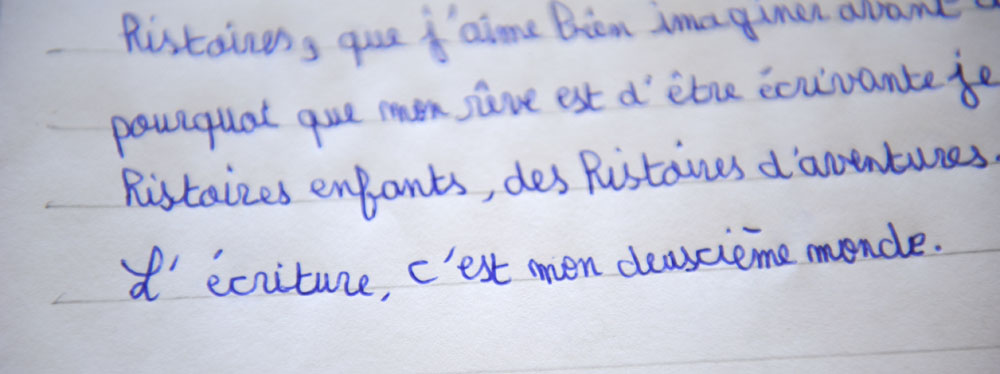 histoires, que j'aime bien imaginer avant
pourquoi que mon rêve est d'être écrivante je
histoires enfants, des histoires d'aventures.
L'écriture, c'est mon deuscième monde.